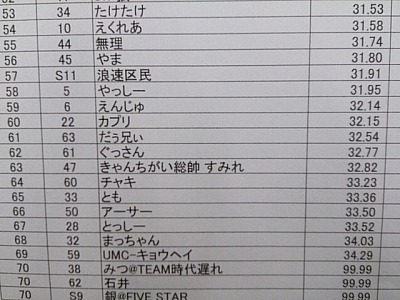 53 34 たけたけ 31.53
54 10 えくれあ 31.58
55 44 無理 31.74
56 45 やま 31.80
57 S11 浪速区民 31.91
58 5 やっしー 31.95
59 6 えんじゅ 32.14
60 22 カプリ 32.15
61 63 だぅ兄ぃ 32.54
62 61 ぐっさん 32.77
63 47 きゃんちがい総帥 すみれ 32.82
64 60 チャキ 33.23
65 33 とも 33.36
66 50 アーサー 33.50
67 28 とっしー 33.52
68 32 まっちゃん 34.03
69 59 UMC-キョウヘイ 34.29
70 38 みつ@TEAM時代遅れ 99.99
70 62 石井 99.99
70 S9 銀@FIVE STAR 99.99